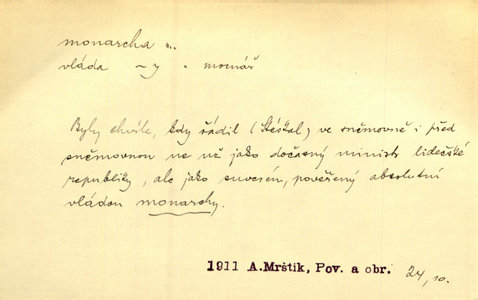 monarcha m.
vláda ~y . mocnář
Byly chvíle, kdy řádil (Stéškal) ve sněmovně i před
sněmovnou ne už jako dočasný ministr lidečské
republiky, ale jako suverén, pověřený absolutní
vládou monarchy.
1911 A.Mrštík, Pov. a obr. 24, 10.